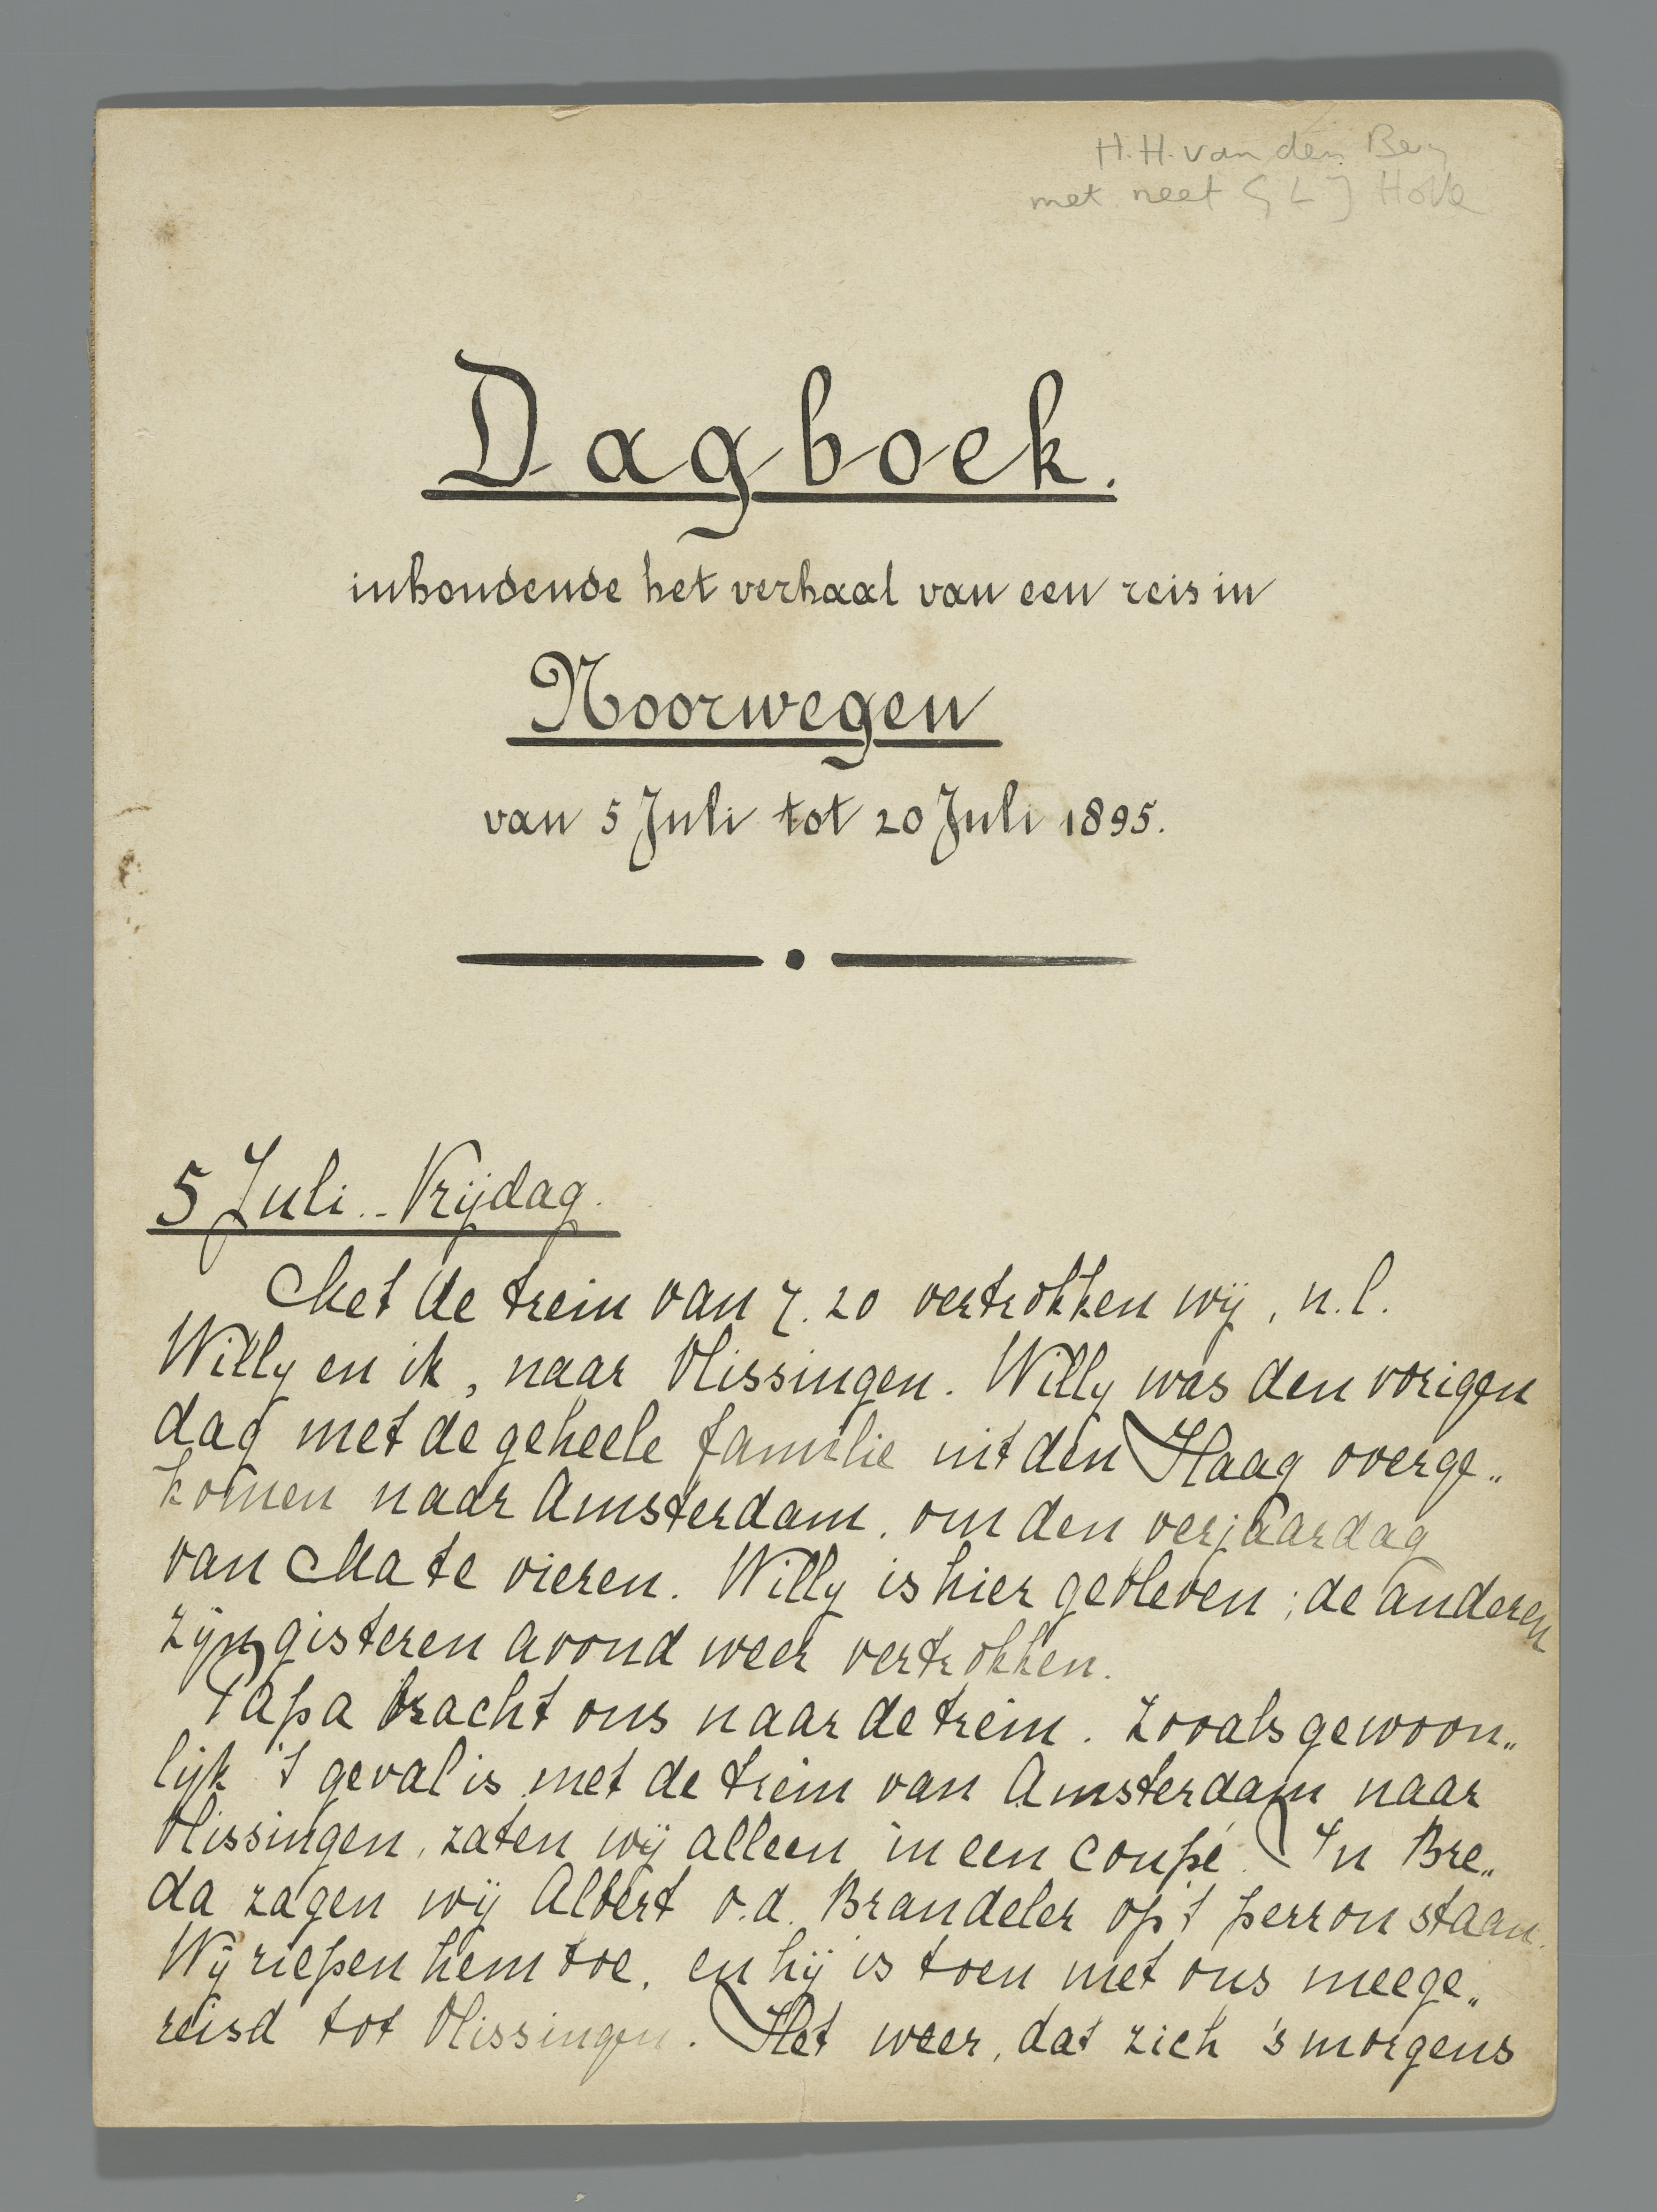 H.H. van den Berg
met neef G L J Hove
Dagboek.
inhoudende het verhaal van een reis in
Noorwegen
van 5 Juli tot 20 Juli 1895.
5 Juli.. Vrijdag.
Met de trein van 7.20 vertrokken wij, n.l.
Willy en ik, naar Vlissingen. Willy was den vorigen
dag met de geheele familie uit den Haag overge„
komen naar Amsterdam, om den verjaardag
van Ma te vieren. Willy is hier gebleven; de anderen
zijn gisteren avond weer vertrokken.
Papa bracht ons naar de trein. Zooals gewoon„
lijk 't geval is met de trein van Amsterdam naar
Vlissingen, zaten wij alleen in een coupé. In Bre„
da zagen wij Albert v.d. Brandeler op 't perron staan.
Wij riepen hem toe, en hij is toen met ons meege„
reisd tot Vlissingen. Het weer, dat zich 's morgens